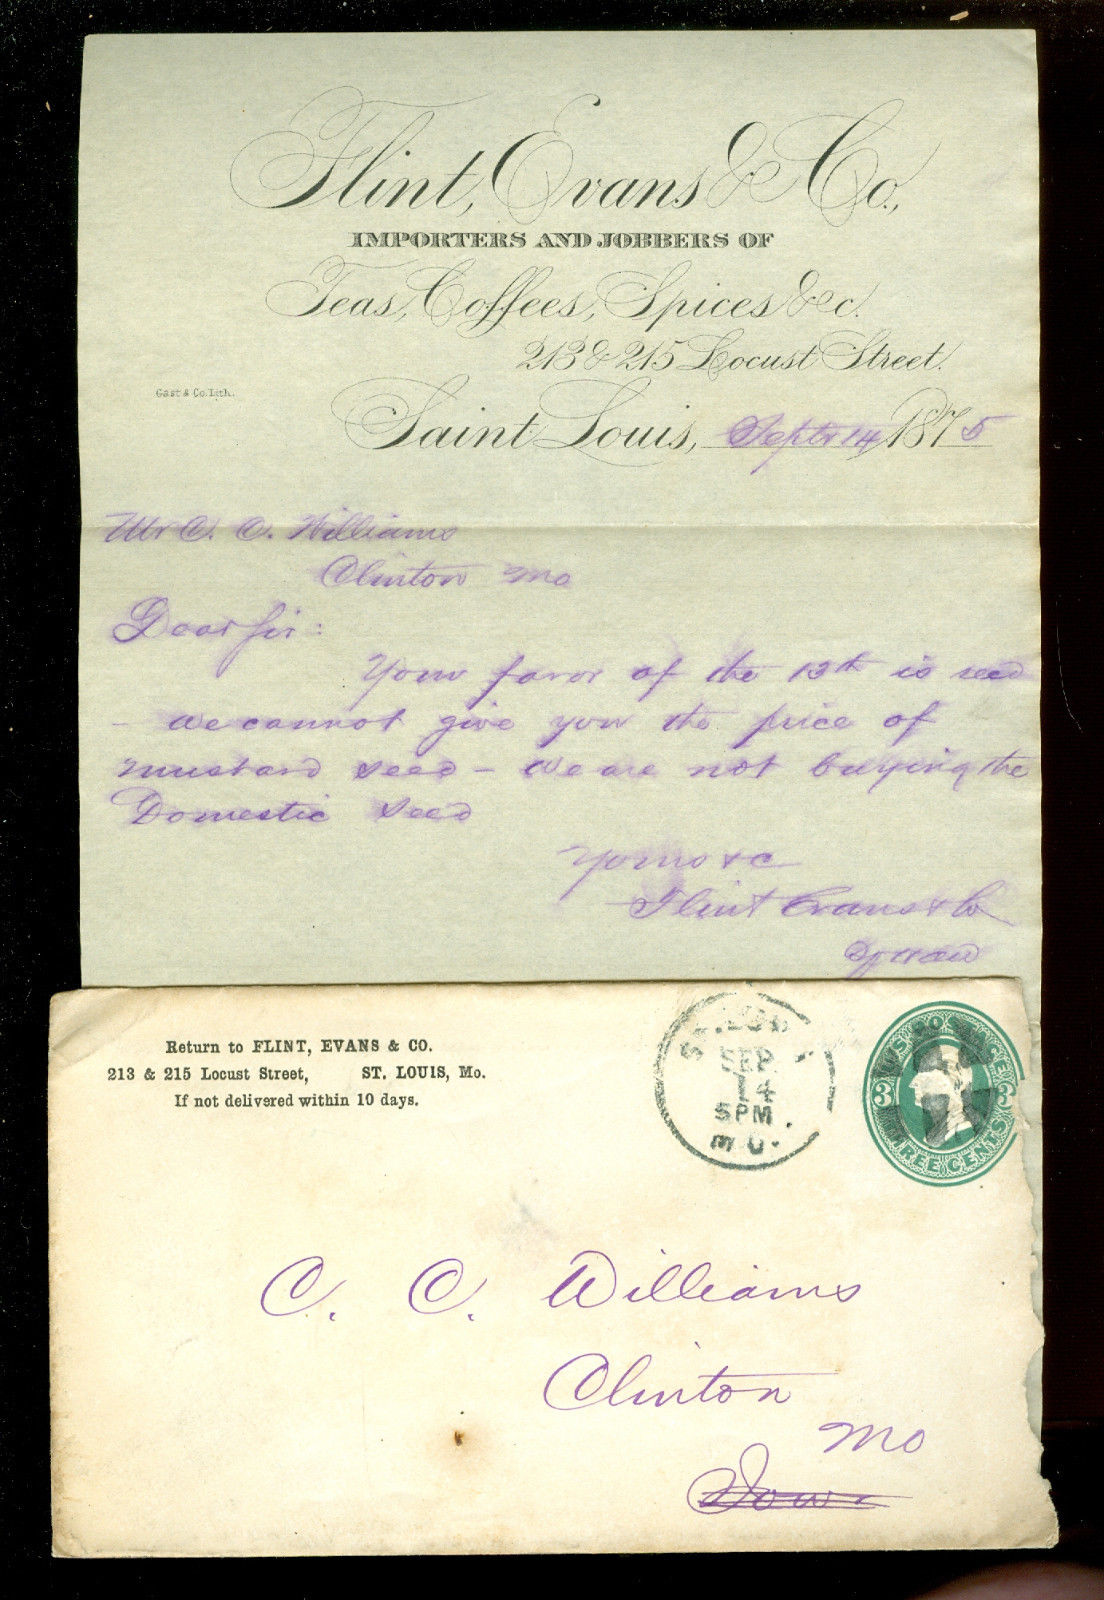 Flint, Evans & Co.,
IMPORTERS AND JOBBERS OF
Teas, Coffees, Spices &c.
213 & 215 Locust Street.
Gast & Co. Lith.
Saint Louis, Septr 14 1875
Mr C. C. Williams
Clinton Mo
Dear Sir:
Your favor of the 13th is recd
- We cannot give you the price of
mustard seed - We are not buying the
Domestic seed
Yours &c
Flint Evans & Co
Return to FLINT, EVANS & CO.
213 & 215 Locust Street, ST. LOUIS, Mo.
If not delivered within 10 days.
SEP
14
5PM
MO.
U.S. POSTAGE
3 3
THREE CENTS
C. C. Williams
Clinton
Mo
Iowa